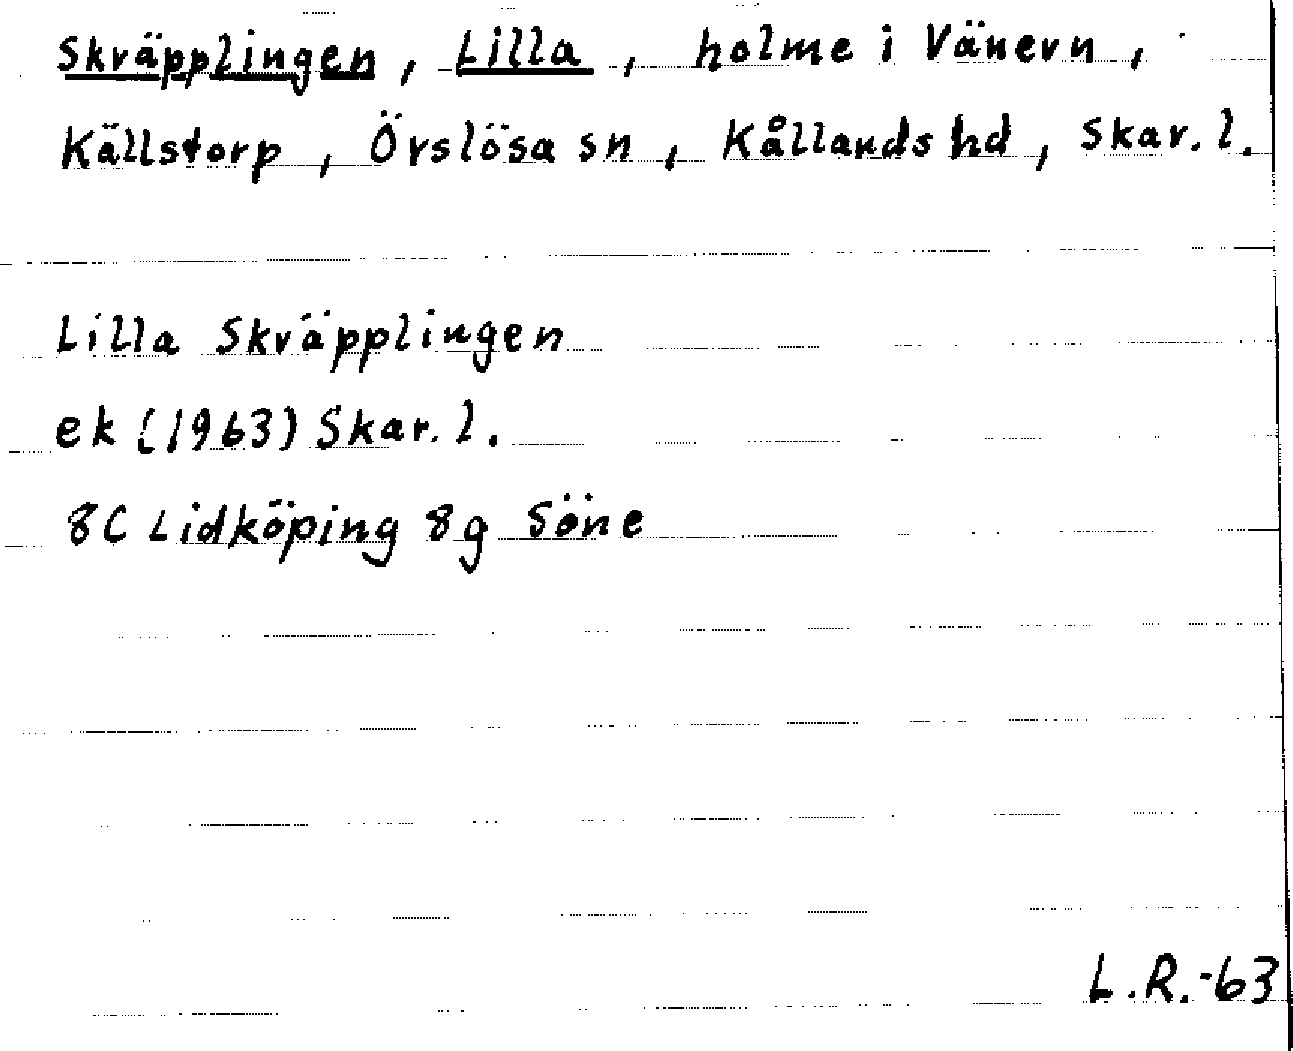 Skräpplingen, Lilla, holme i Vänern,
Källstorp, Örslösa sn, Kållands hd, Skar. l.
Lilla Skräpplingen
ek (1963) Skar. l.
8C Lidköping 8g Söne
L.R.-63